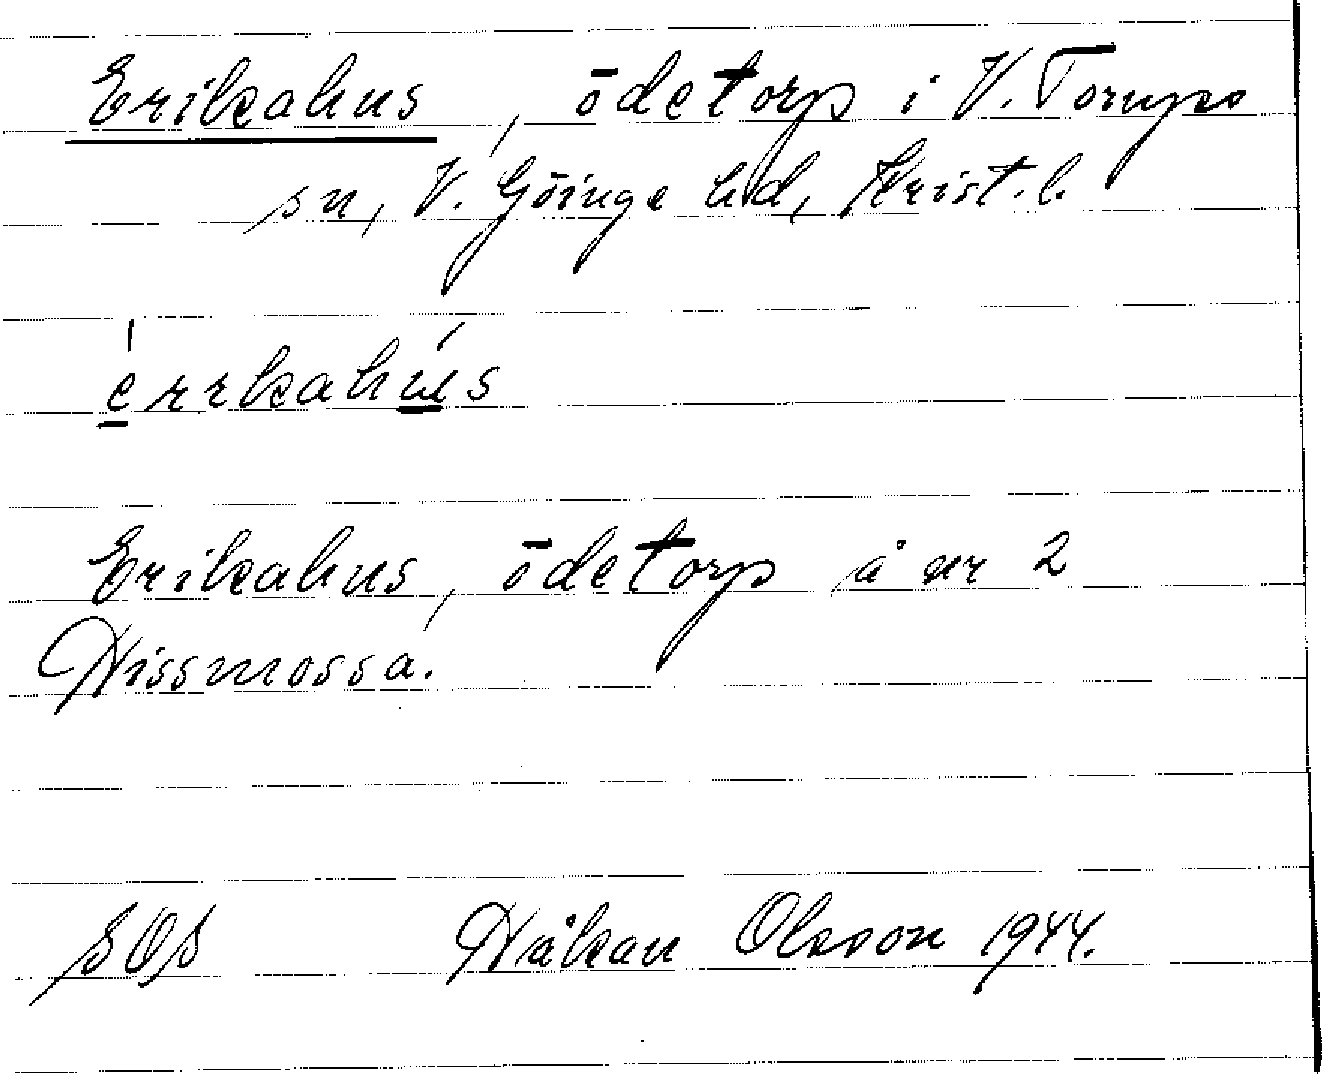 Erikahus, ödetorp i V. Torups
sn, V. Göinge hd, Krist. l.
érrkahús
Erikahus, ödetorp å nr 2
Hissmossa.
SOS Håkan Olsson 1944.